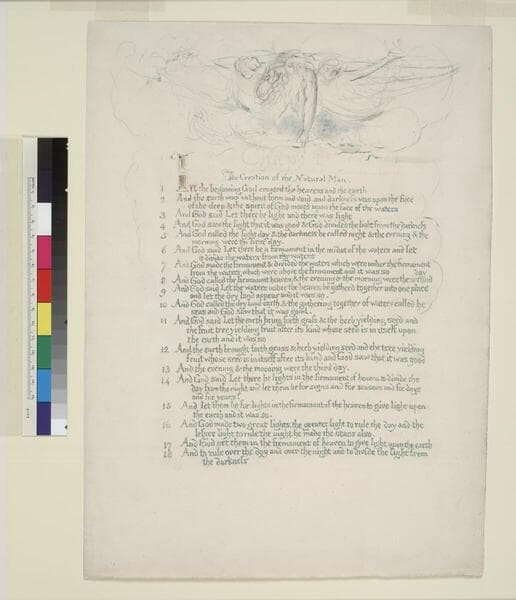 The Creation of the Natural Man
1 In the beginning God created the heavens and the earth
2 And the earth was without form and void and darkness was upon the face
of the deep & the spirit of God moved upon the face of the waters
3 And God said Let there be light and there was light
4 And God saw the light that it was good & God divided the light from the darkness
5 And God called the light day & the darkness he called night & the evening & the
morning were the first day.
6 And God said Let there be a firmament in the midst of the waters and let
it divide the waters from the waters
7 And God made the firmament & divided the waters which were under the firmament
from the waters which were above the firmament and it was so
day
8 And God called the firmament heaven & the evening & the morning were the second
9 And God said Let the waters under the heaven be gatherd together into one place
and let the dry land appear and it was so.
10 And God called the dry land earth & the gathering together of waters called he
seas and God saw that it was good.
11 And God said Let the earth bring forth grass & the herb yielding seed and
the fruit tree yielding fruit after its kind whose seed is in itself upon
the earth and it was so
12 And the earth brought forth grass & herb yielding seed and the tree yielding
fruit whose seed is in itself after its kind and God saw that it was good
13 And the evening & the morning were the third day.
14 And God said Let there be lights in the firmament of heaven to divide the
day from the night and let them be for signs and for seasons and for days
and for years
15 And let them be for lights in the firmament of the heaven to give light upon
the earth and it was so.
16 And God made two great lights the greater light to rule the day and the
lesser light to rule the night he made the stars also.
17 And God set them in the firmament of heaven to give light upon the earth
18 And to rule over the day and over the night and to divide the light from
the darkness